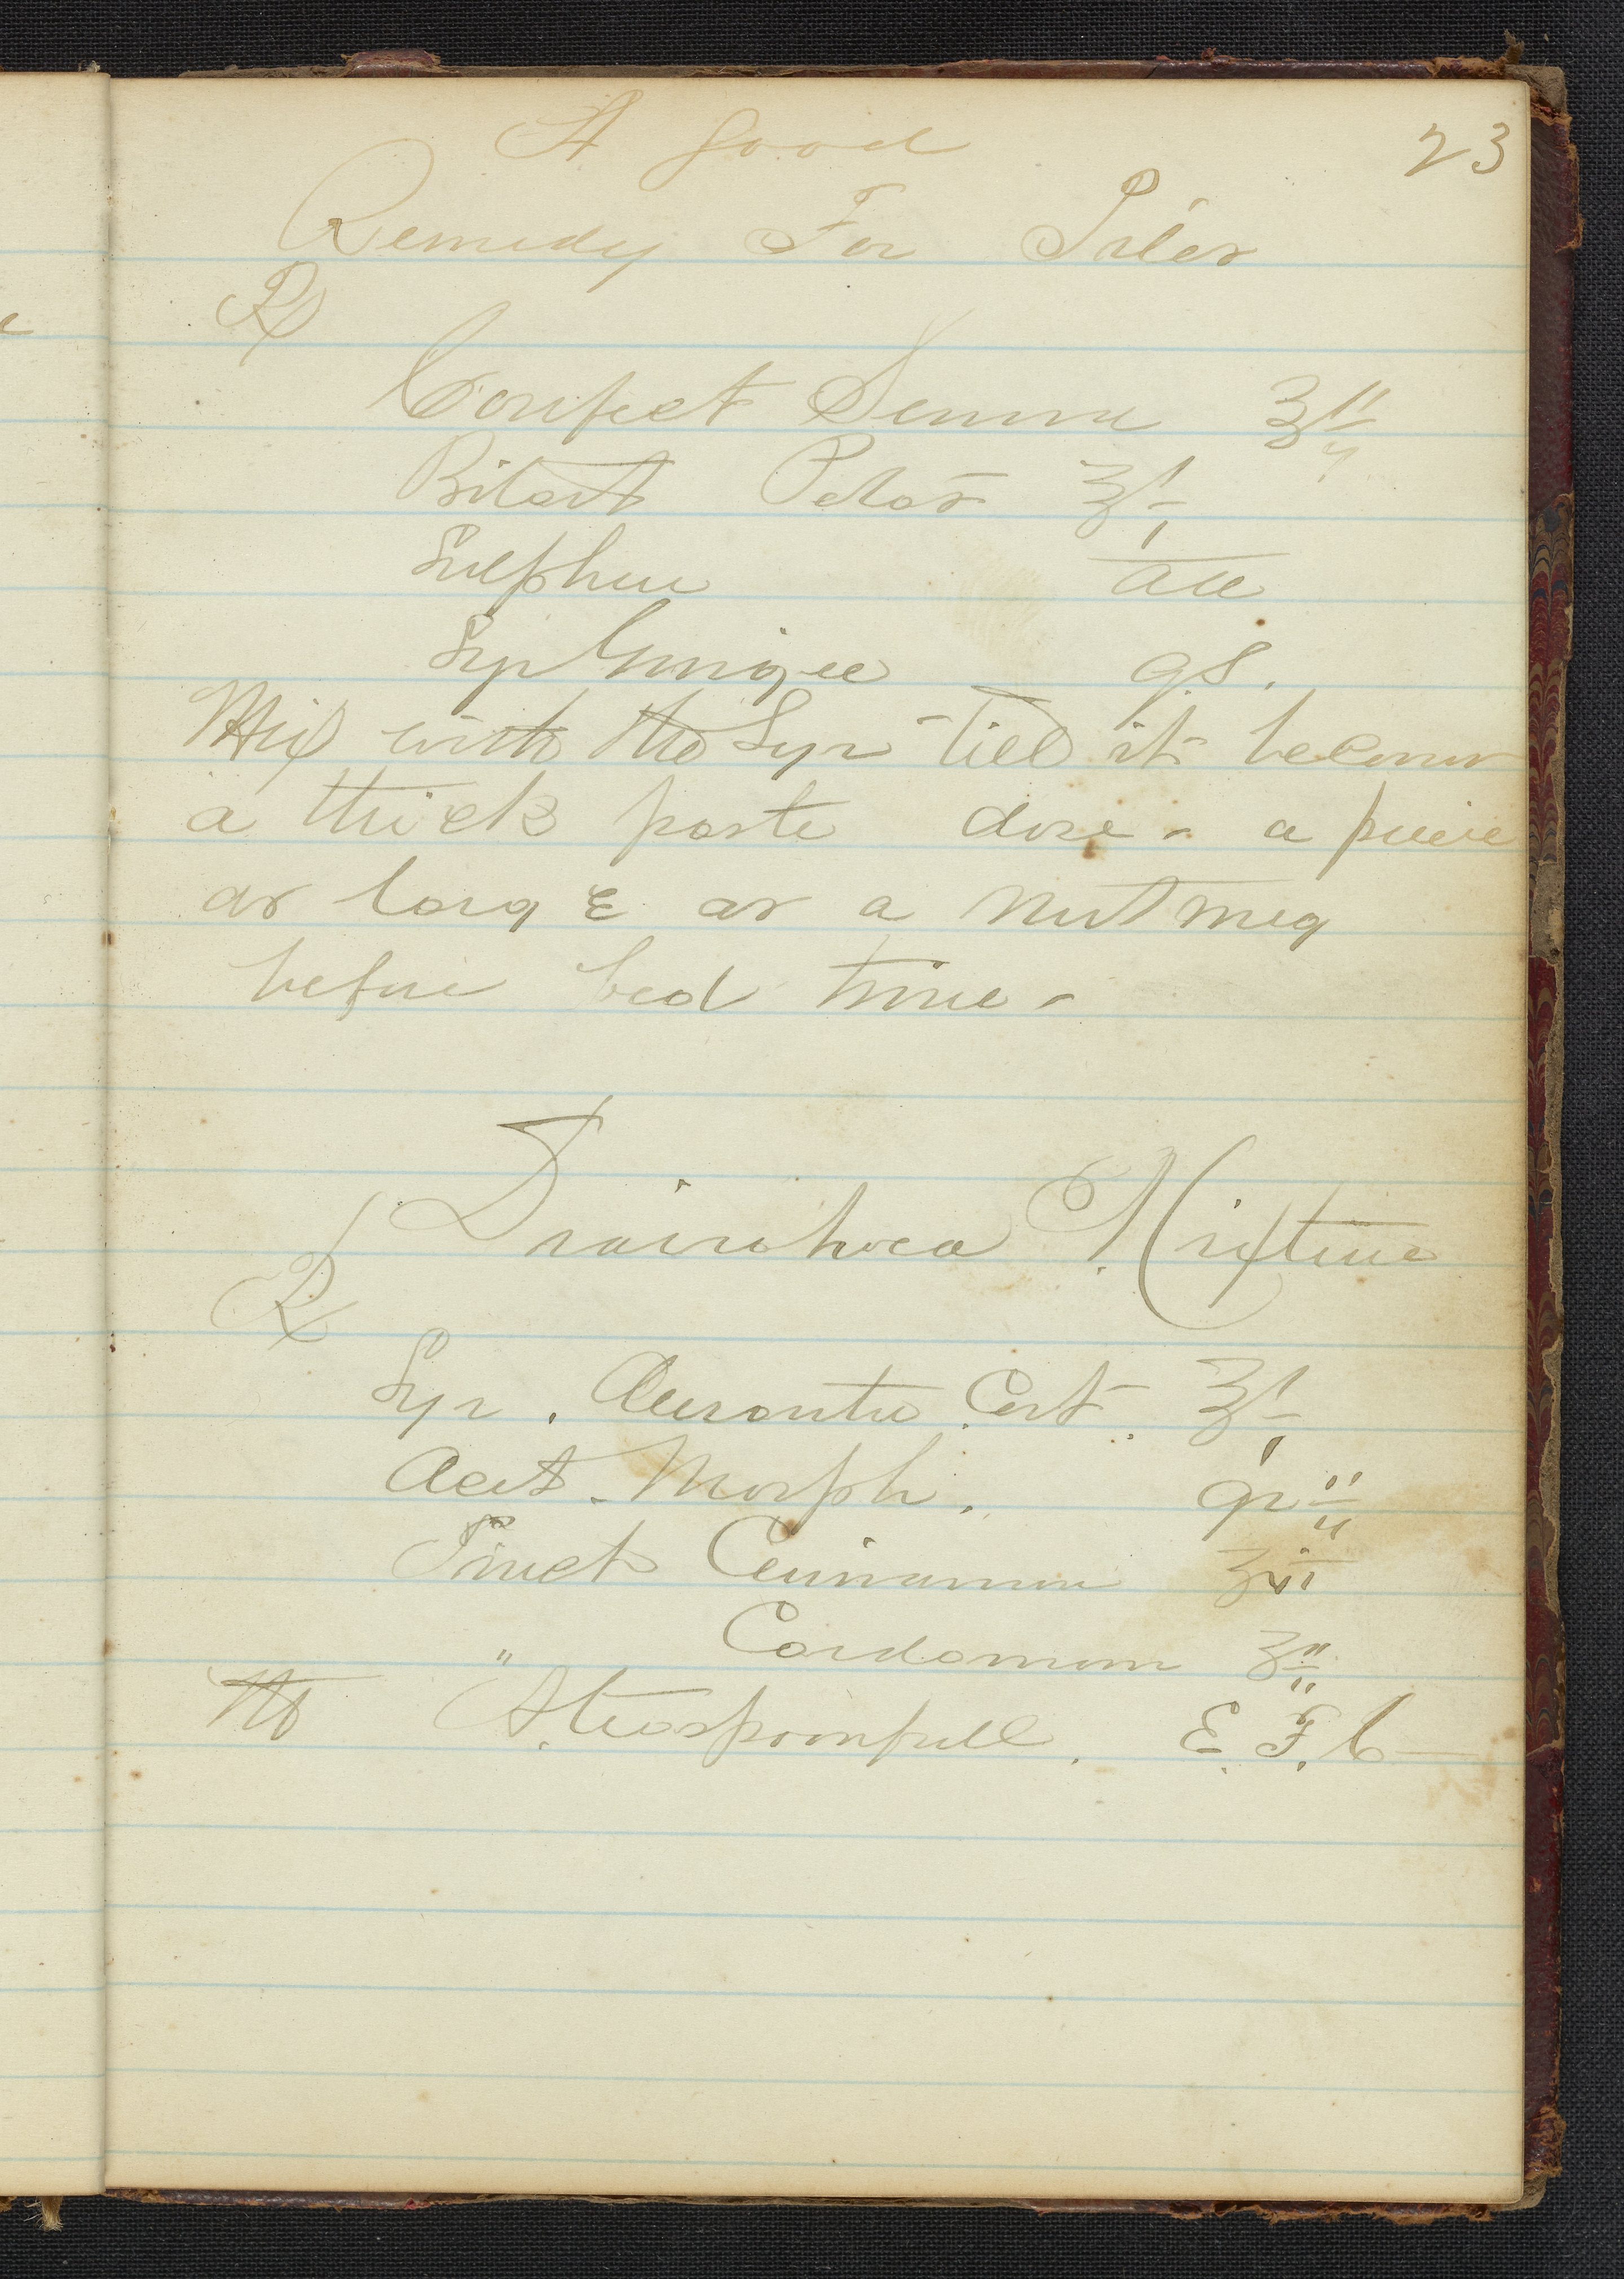 23
A good
Remedy For Piles
℞
Confect Senna ℥ii
Bitart Potas ℥i
Sulphur aa
Syr Ginger qs.
Mix with the Syr till it becomes
a thick paste dose - a piece
as large as a nutmeg
before bed time -
Diairohoea Mixture
℞
Syr. Aurantii Cort. ℥i
Acet. Morph. gr ii
Tinct Cinnamon
" Cardamom ʒii
A teaspoonfull. E. F. C